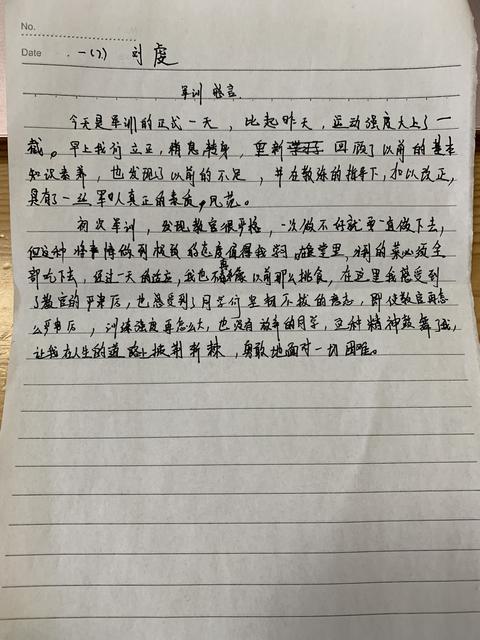 No.
Date 一(7) 刘虔
军训感言
今天是军训的正式一天，比起昨天，运动强度大上了一
截。早上我们立正，稍息转身，重新回顾了以前的基本
知识素养，也发现了以前的不足，并在教练的指导下，加以改正，
具有了一丝军人真正的素质，风范。
初次军训，发现教官很严格，一次做不好就要一直做下去，
但这种将事情做到极致的态度值得我学习。在食堂里，分到的菜必须全
部吃下去，经过一天的适应，我也不再像以前那么挑食，在这里我感受到
了教官的严肃后，也感受到了同学们坚韧不拔的意志，即使教官再怎
么严肃后，训练强度再怎么大，也没有放弃的同学，这种精神鼓舞了我，
让我在人生的道路上披荆斩棘，勇敢地面对一切困难。